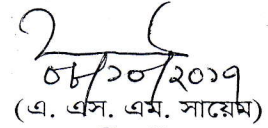 ০৮/১০/২০১৭
(এ. এস. এম. সায়েম)